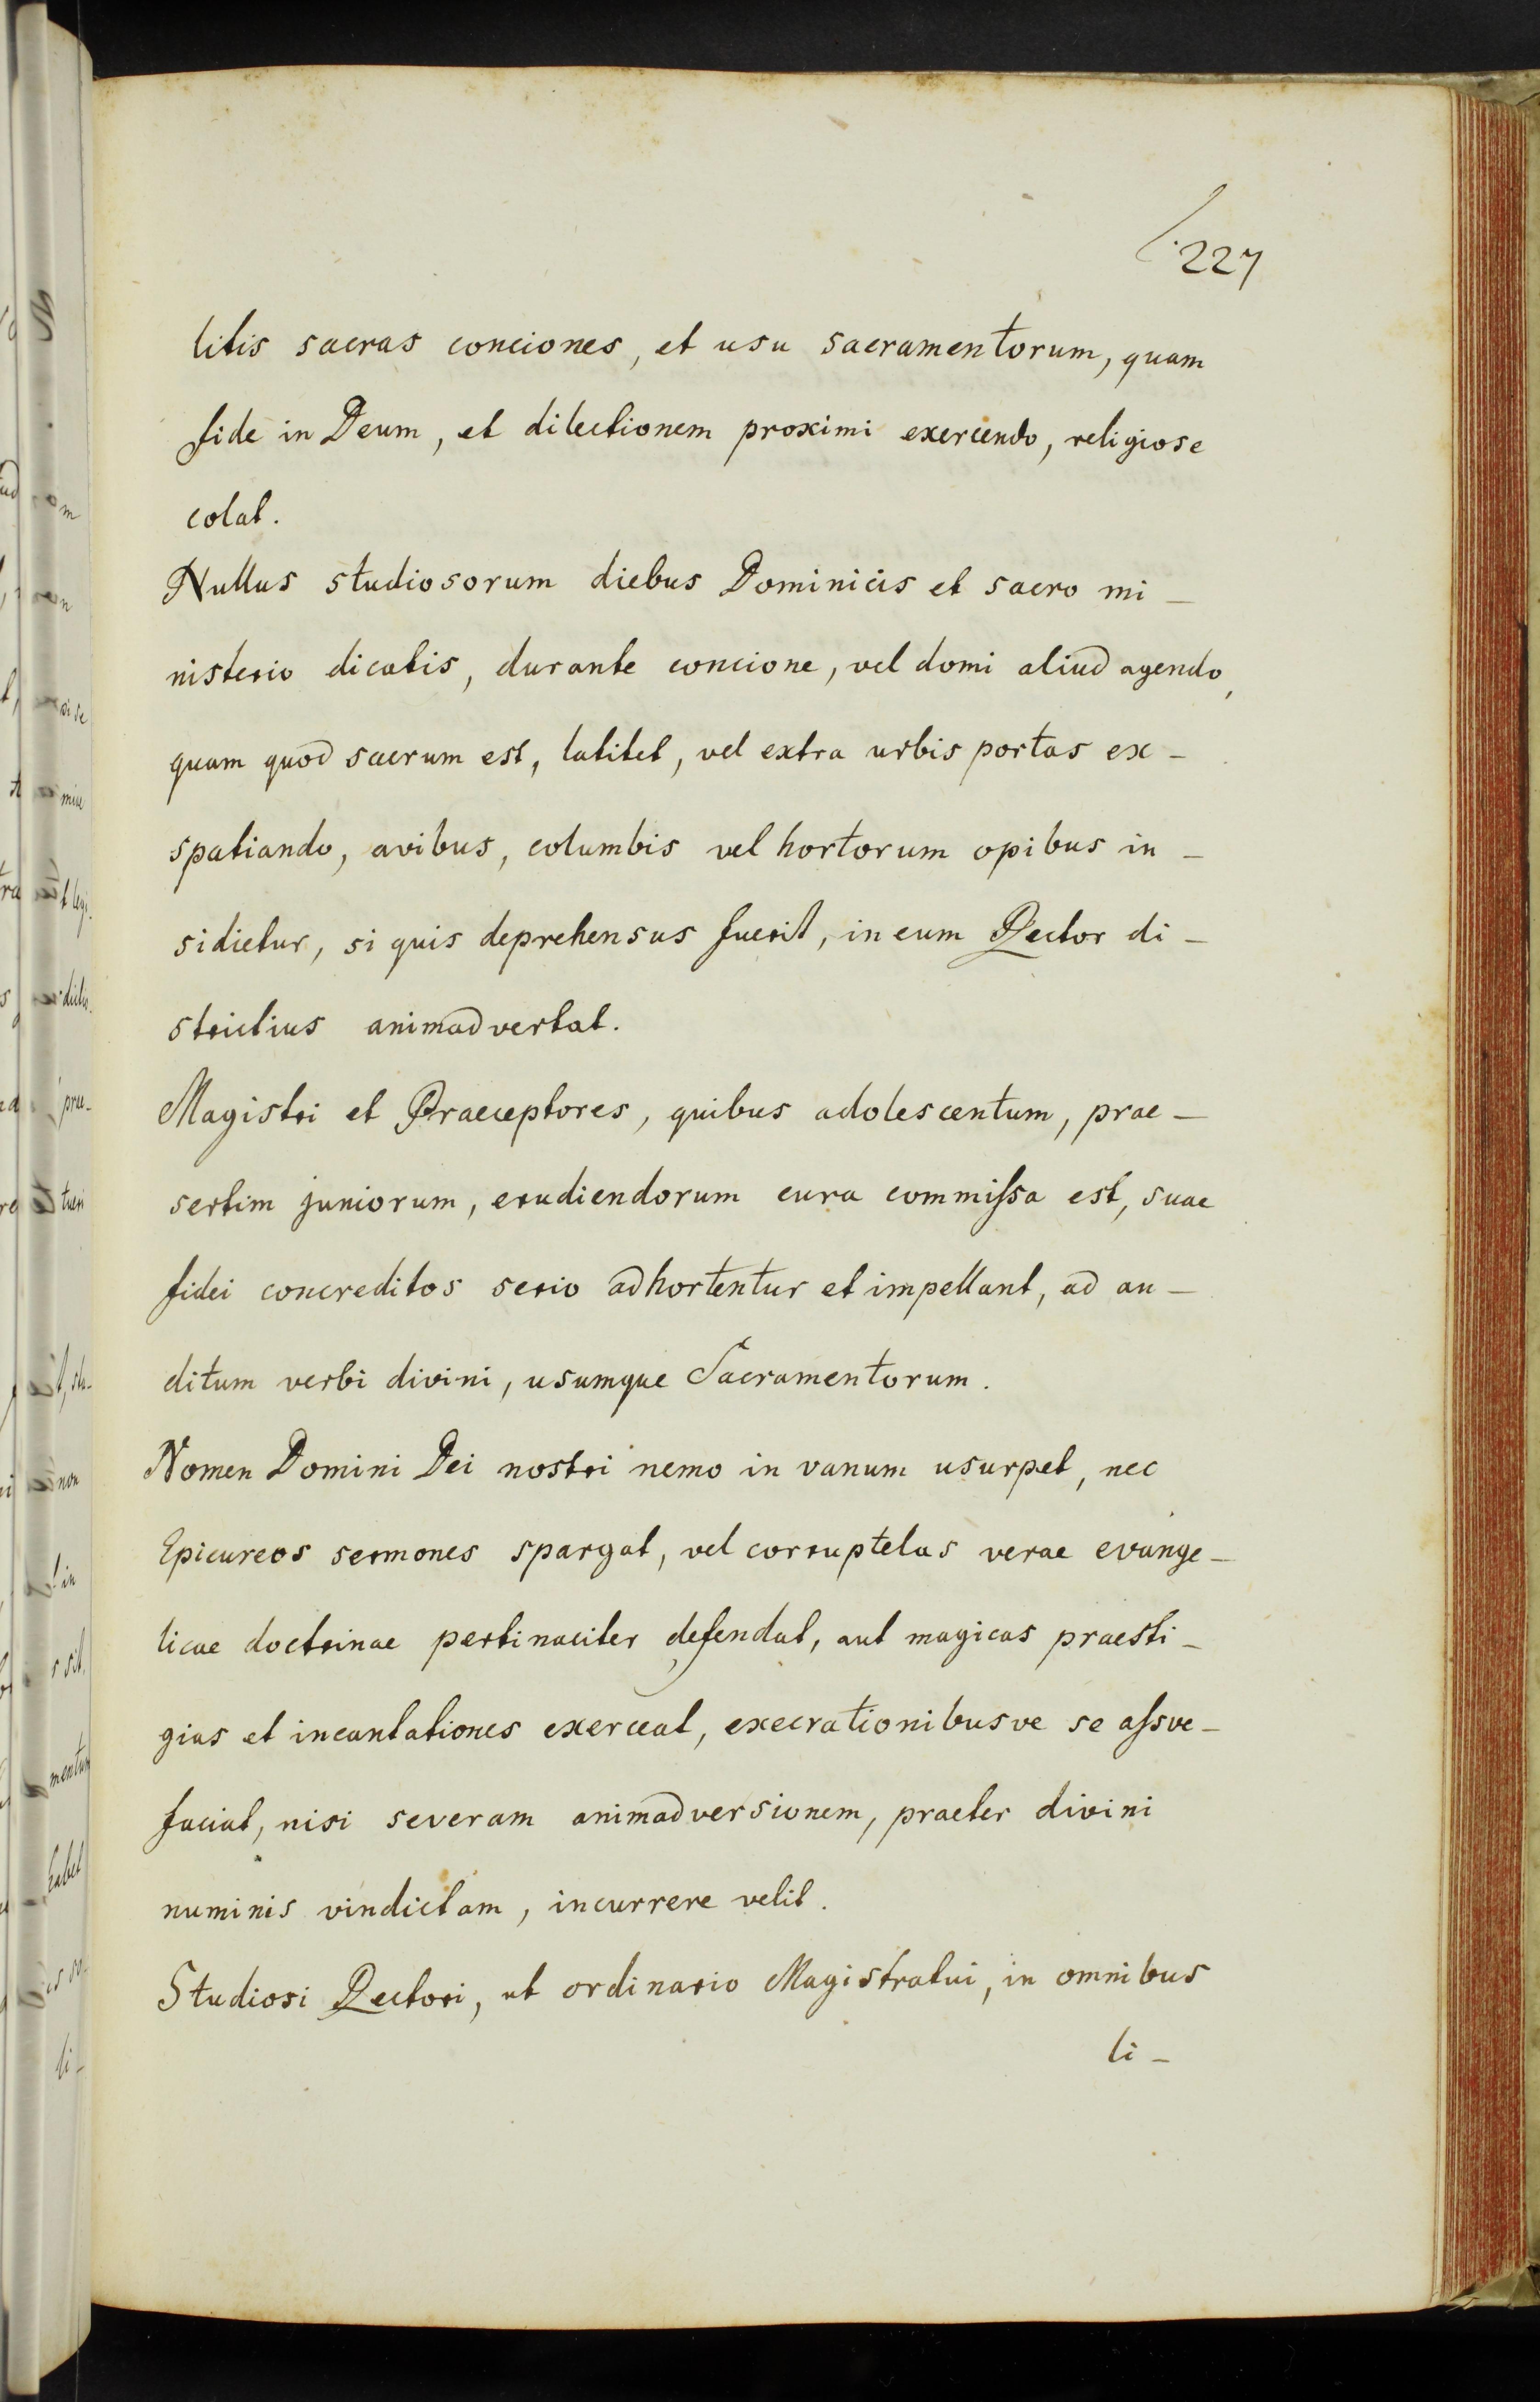 227
litis sacras conciones, et usu sacramentorum, quam
fide in Deum, et dilectionem proximi exercendo, religiose
colat.
Nullus studiosorum diebus Dominicis et sacro mi-
nisterio dicatis, durante concione, vel domi aliud agendo,
quam quod sacrum est, latitet, vel extra urbis portas ex-
spatiando, avibus, columbis vel hortorum opibus in-
sidietur, si quis deprehensus fuerit, in eum Rector di-
strictius animadvertat.
Magistri et Praeceptores, quibus adolescentum, prae-
sertim juniorum, erudiendorum cura commissa est, suae
fidei concreditos serio adhortentur et impellant, ad au-
ditum verbi divini, usumque Sacramentorum.
Nomen Domini Dei nostri nemo in vanum usurpet, nec
Epicureos sermones spargat, vel corruptelas verae evange-
licae doctrinae pertinaciter defendat, aut magicas praesti-
gias et incantationes exerceat, execrationibusve se assve-
faciat, nisi severam animadversionem, praeter divini
numinis vindictam, incurrere velit.
Studiosi Rectori, ut ordinario Magistratui, in omnibus
li-